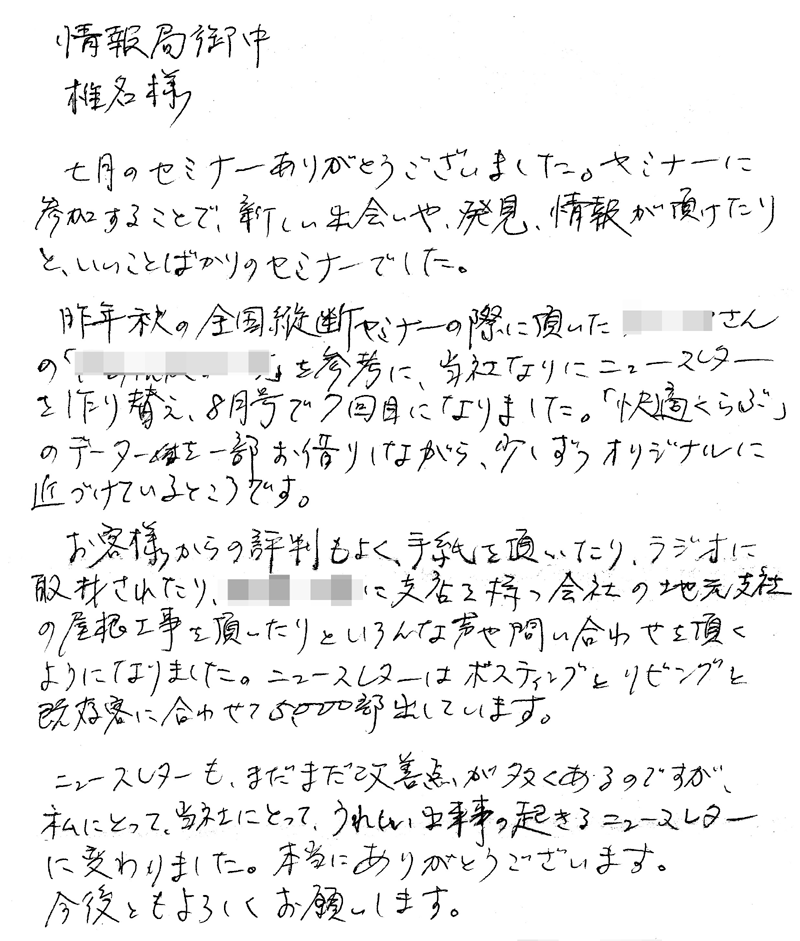 情報局御中
椎名様
七月のセミナーありがとうございました。セミナーに
参加することで、新しい出会いや、発見、情報が頂けたり
と、いいことばかりのセミナーでした。
昨年秋の全国縦断セミナーの際に頂いた さん
の「 」を参考に、当社なりにニュースレター
を作り替え、8月号で7回目になりました。「快適くらぶ」
のデーターは一部お借りしながら、少しずつオリジナルに
近づけているところです。
お客様からの評判もよく、手紙を頂いたり、ラジオに
取材されたり、 に支店を持つ会社の地元支社
の屋根工事を頂いたりといろんな声や問い合わせを頂く
ようになりました。ニュースレターはポスティングとリビングと
既存客に合わせて5000部出しています。
ニュースレターも、まだまだ改善点が多くあるのですが、
私にとって、当社にとって、うれしい出来事の起きるニュースレター
に変わりました。本当にありがとうございます。
今後ともよろしくお願いします。